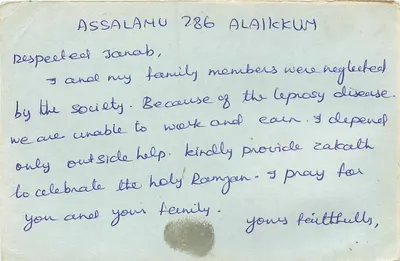 ASSALAMU 786 ALAIKKUM
Respected Janab,
I and my family members were neglected
by the society. Because of the leprosy disease.
we are unable to work and earn. I depend
only outside help. kindly provide zakath
to celebrate the holy Ramzan. I pray for
you and your family.
yours faithfully,